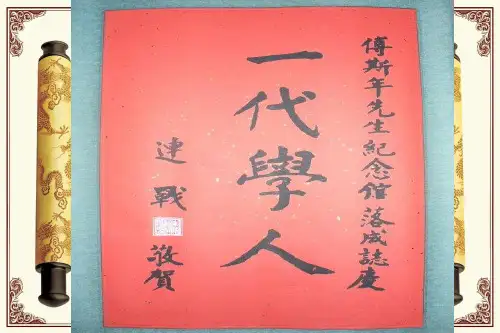 傅斯年先生紀念館落成誌慶
一代學人
連戰敬賀